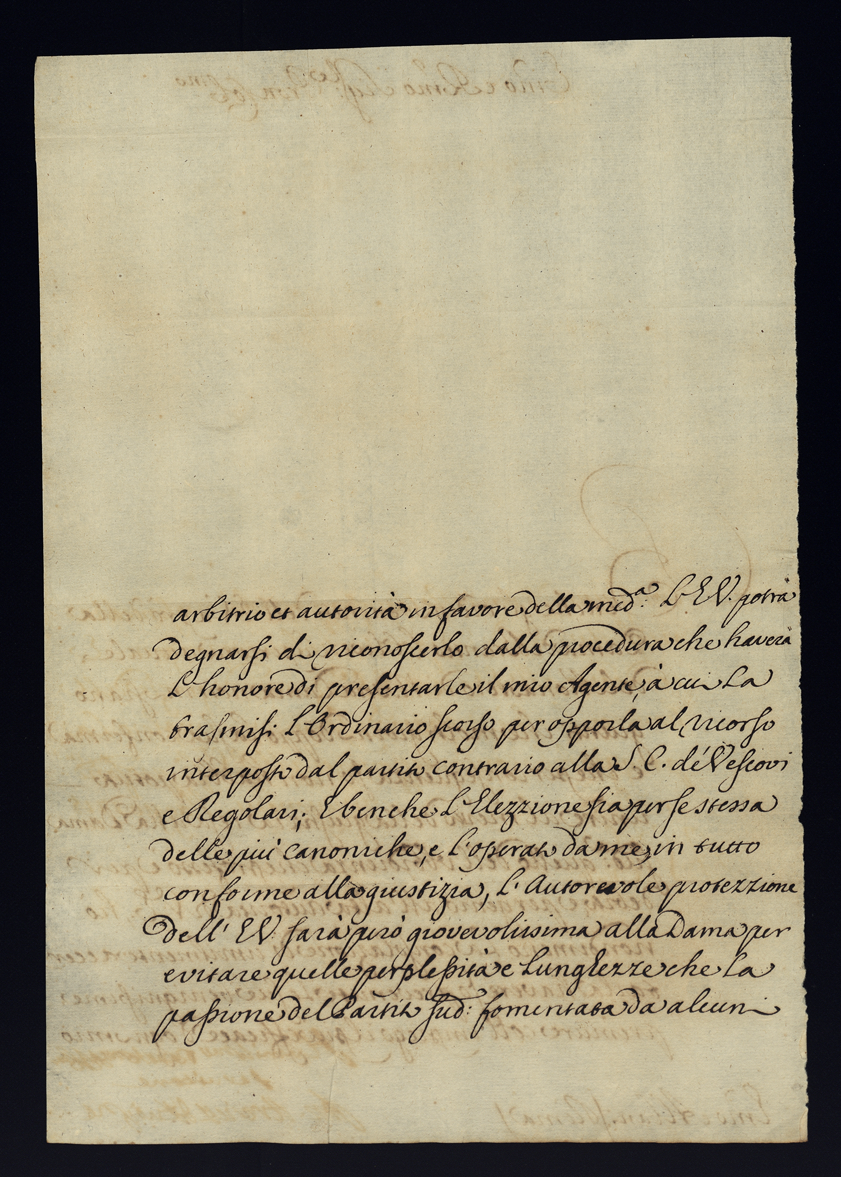 arbitrio et autorità in favore della med.ª L'E V. potrà
degnarsi di riconoscerlo dalla procedura che haverà
L'honore di presentarle il mio Agente, à cui La
trasmisi L'Ordinario scorso per opporla al ricorso
interposto dal partito contrario alla S. C. de' Vescovi
e Regolari; E benche L'Elezzione sia per se stessa
delle più canoniche, e l'operato da me, in tutto
conforme alla giustizia, L'Autorevole protezzione
dell' E V sarà però giovevolissima alla Dama per
evitare quelle perplessità e Lunghezze che La
passione del Partito sud.º fomentata da alcuni